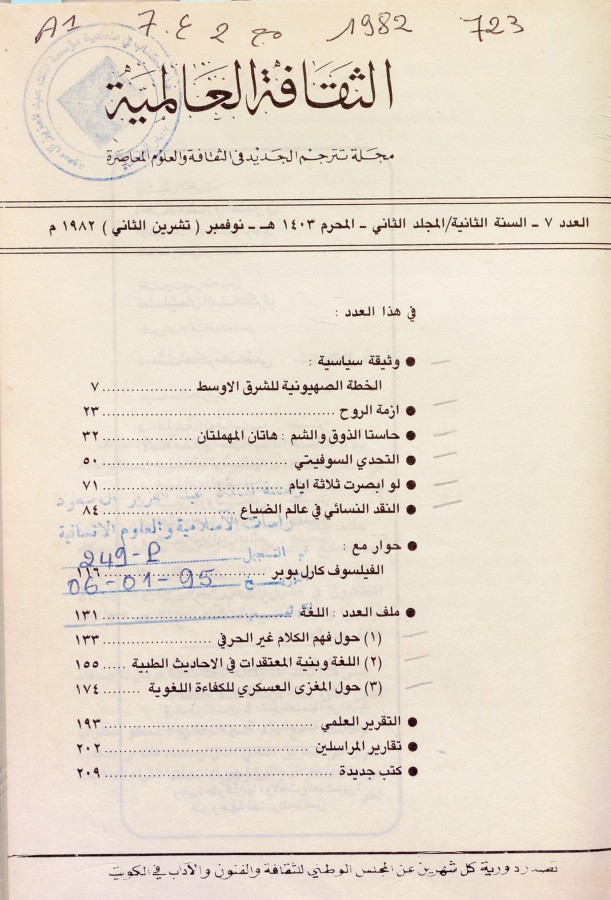 A1 7.ع 2 مج 1982 723
الثقافة العالمية
مجلة تترجم الجديد في الثقافة والعلوم المعاصرة
العدد ٧ ـ السنة الثانية/المجلد الثاني ـ المحرم ١٤٠٣ هـ ـ نوفمبر ( تشرين الثاني ) ١٩٨٢ م
في هذا العدد :
● وثيقة سياسية :
الخطة الصهيونية للشرق الاوسط .................... ٧
● ازمة الروح .................... ٢٣
● حاستا الذوق والشم : هاتان المهملتان .................... ٣٢
● التحدي السوفيتي .................... ٥٠
● لو ابصرت ثلاثة ايام .................... ٧١
● النقد النسائي في عالم الضياع .................... ٨٤
للدراسات الاسلامية والعلوم الانسانية
● حوار مع :
رقم التسجيل 249-P
الفيلسوف كارل بوبر .................... ١١٦
06-01-95
● ملف العدد : اللغة .................... ١٣١
(١) حول فهم الكلام غير الحرفي .................... ١٣٣
(٢) اللغة وبنية المعتقدات في الاحاديث الطبية ..... ١٥٥
(٣) حول المغزى العسكري للكفاءة اللغوية ........ ١٧٤
● التقرير العلمي .................... ١٩٣
● تقارير المراسلين .................... ٢٠٢
● كتب جديدة .................... ٢٠٩
تصدر دورية كل شهرين عن المجلس الوطني للثقافة والفنون والآداب في الكويت